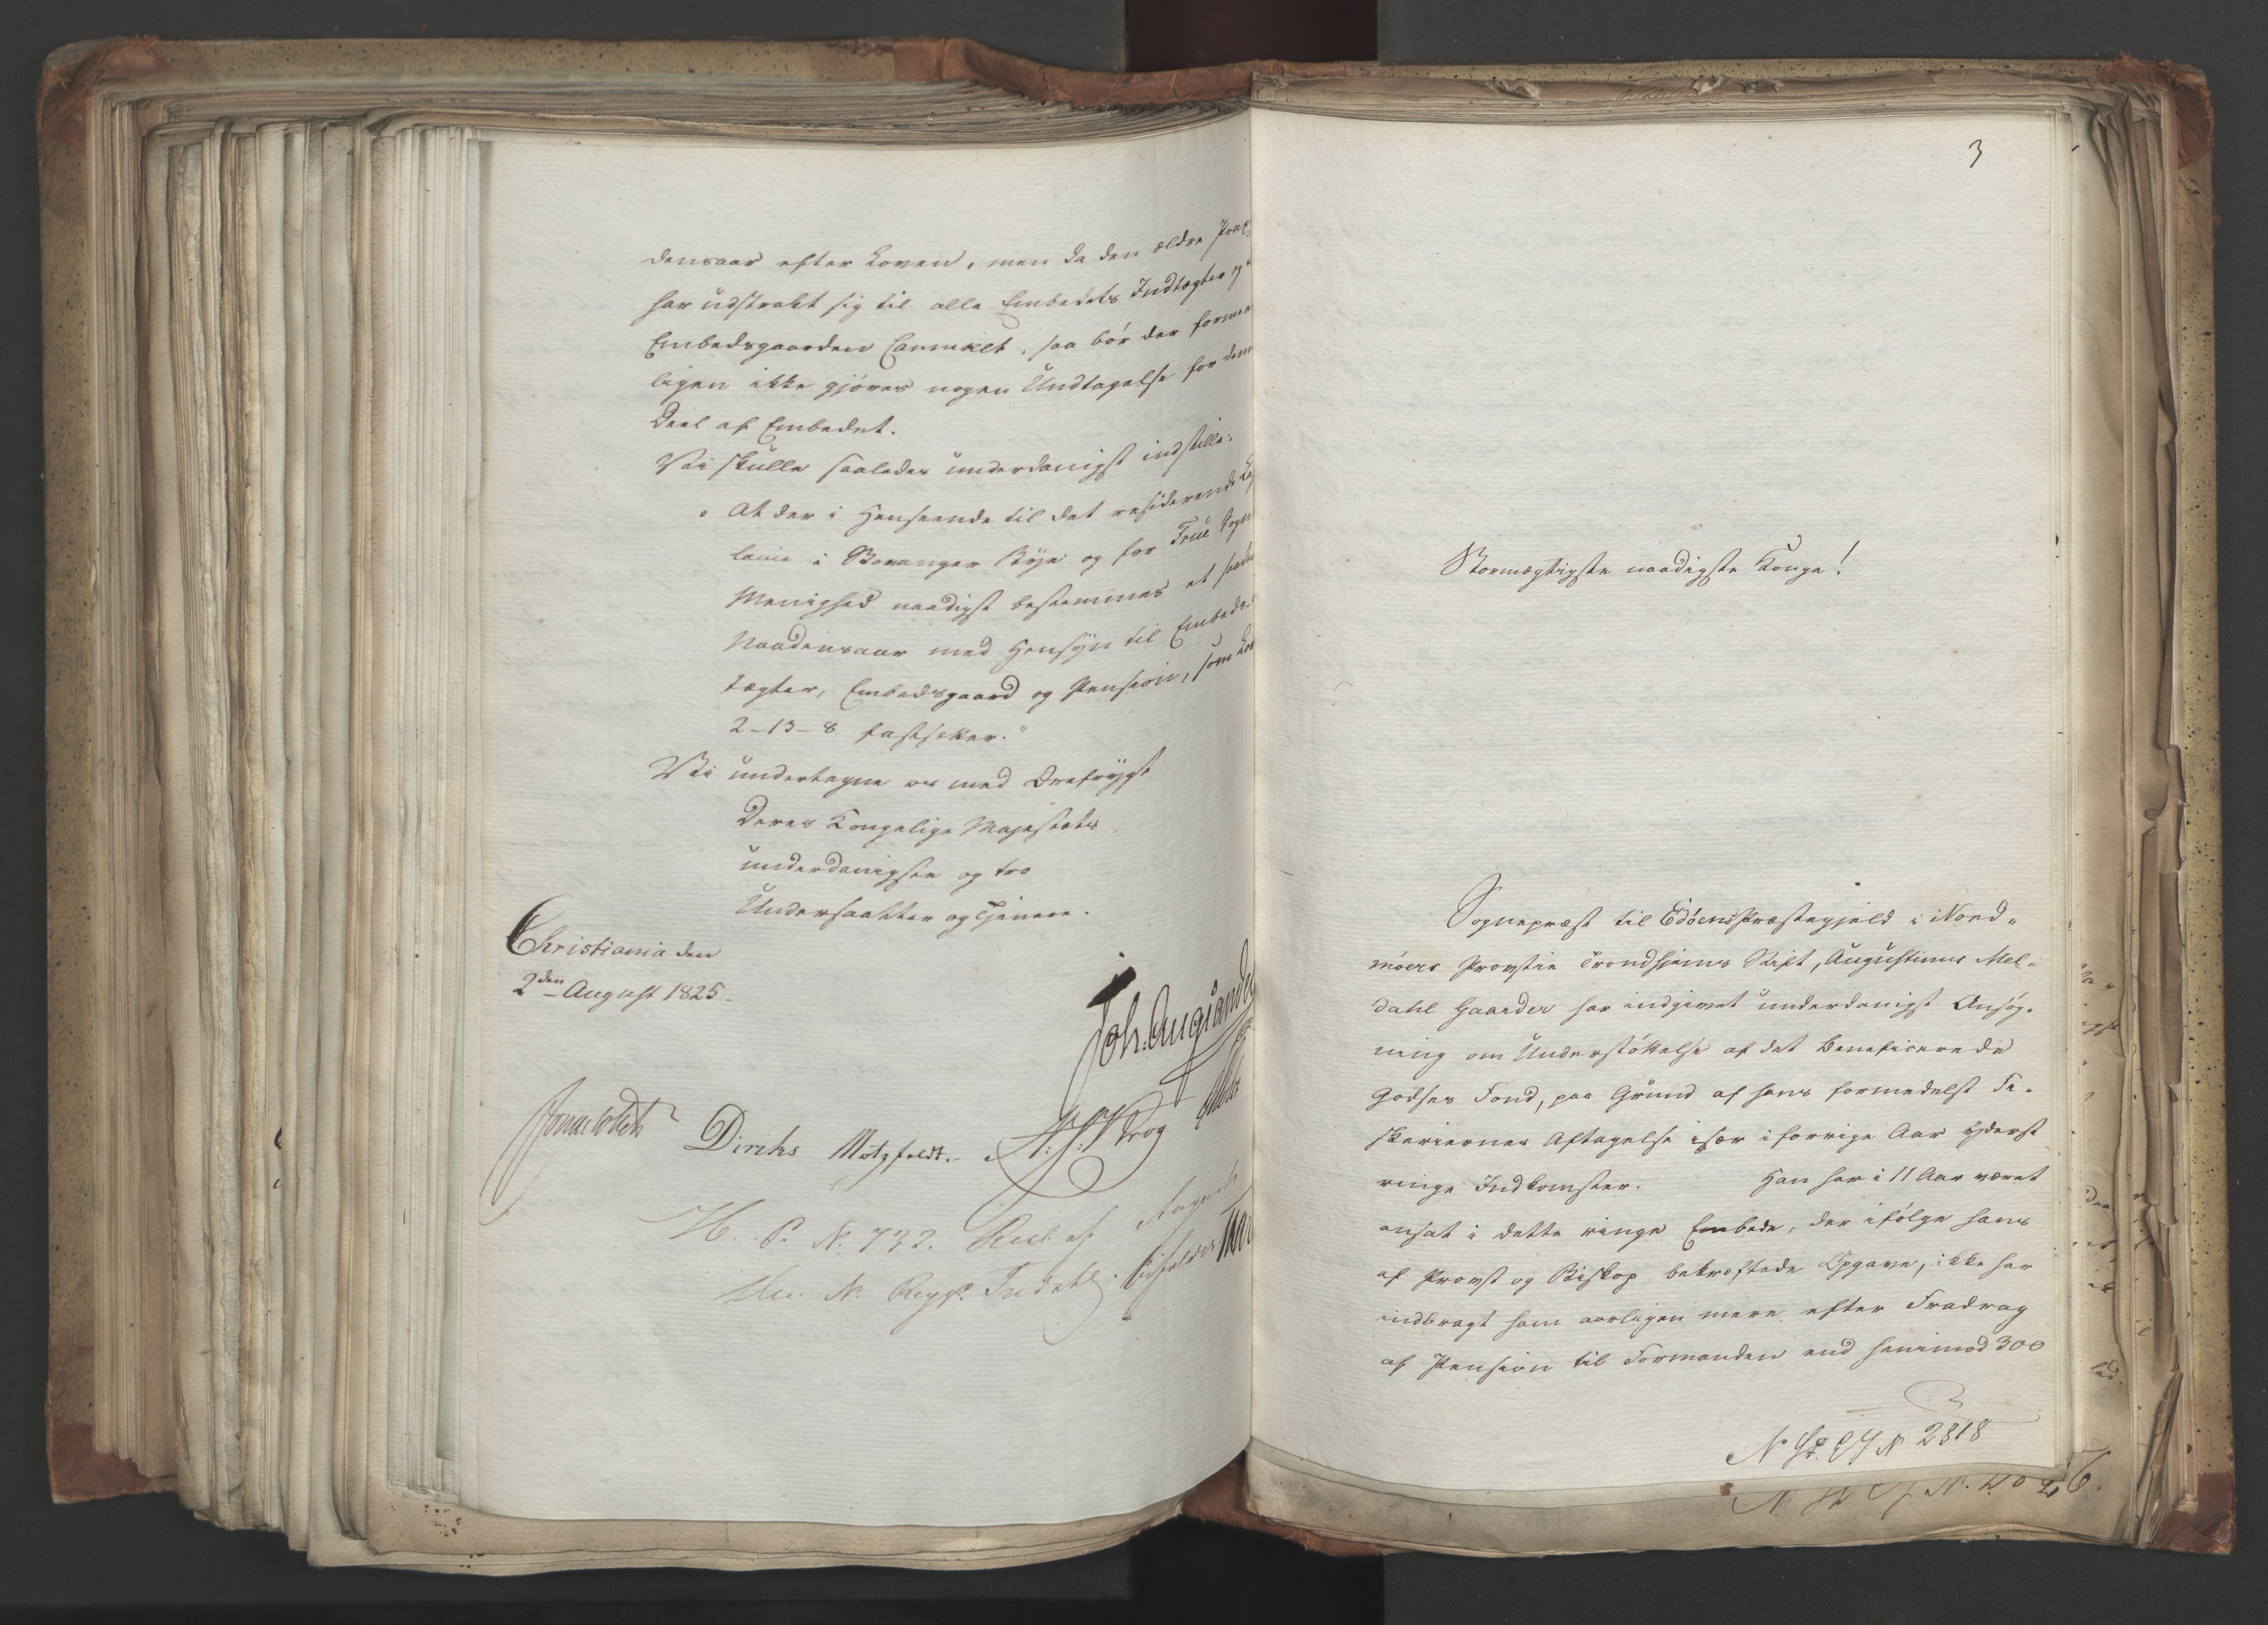 densaar efter Loven, men da den ældre
har udstrakt sig til alle Embedets Indtægter og
Embedsgaarden, saa bør der formeent
ligen ikke gjøres nogen Undtagelse for denne
Deel af Embedet.
Vi skulle saaledes underdanigst indstille:
„At der i Henseende til det residerende Ca
lanie i Stavanger Bye og for Frue Sogns
Menighed naadigst bestemmes et saadant
Naadensaar med Hensyn til Embeds
tægter, Embedsgaard og Pension, som Lov
2-13-8 fastsætter."
Vi undertegne os med Ærefrygt
Deres Kongelige Majestæts
underdanigste og tro
Undersaatter og Tjenere.
Christiania den
2den August 1825.
Joh. Aug: Sandels
Jonas Collett Diriks Motzfeldt. A. P. Krog
H. P. N. 732. Resl. af August
3
Stormægtigste naadigste Konge!
Sognepræst til Edøens Præstegjeld i Nord„
møers Provstie Trondhjems Stift, Augustinus Mel„
dahl Gaarder har indgivet underdanigst Ansøg„
ning om Understøttelse af det beneficerede
Godses Fond, paa Grund af hans formedelst Fi„
skeriernes Aftagelse især i forrige Aar yderst
ringe Indkomster. Han har i 11 Aar været
ansat i dette ringe Embede, der ifølge hans
af Provst og Biskop bekræftede Opgave, ikke har
indbragt ham aarligen mere efter Fradrag
af Pension til Formanden end henimod 300
2318